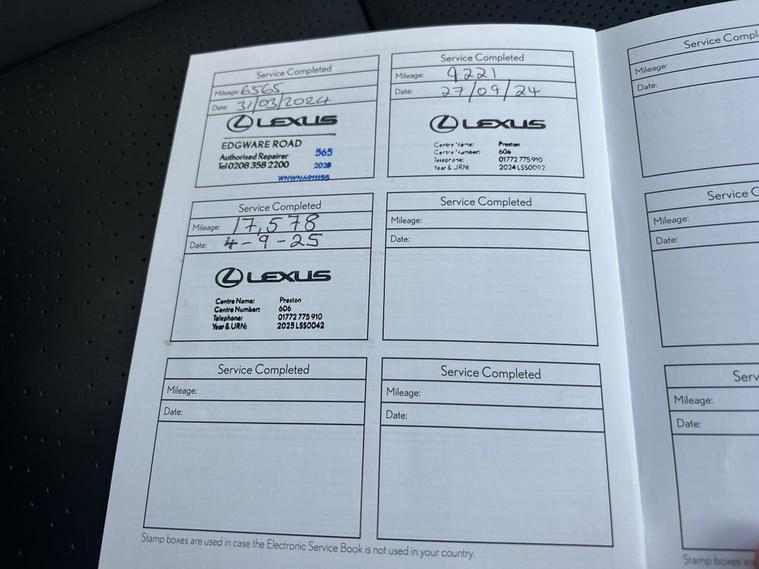 Service Completed
Mileage: 6565
Date: 31/03/2024
LEXUS
EDGWARE ROAD
Authorised Repairer 565
Tel 0208 358 2200 202
Service Completed
Mileage: 9221
Date: 27/09/24
LEXUS
Centre Name: Preston
Centre Number: 606
Telephone: 01772 775 910
Year & URN: 2024 LSS0092
Service Comple
Mileage:
Date:
Service Completed
Mileage: 17,578
Date: 4-9-25
LEXUS
Centre Name: Preston
Centre Number: 606
Telephone: 01772 775 910
Year & URN: 2025 LSS0042
Service Completed
Mileage:
Date:
Service C
Mileage:
Date:
Service Completed
Mileage:
Date:
Service Completed
Mileage:
Date:
Serv
Mileage:
Date:
Stamp boxes are used in case the Electronic Service Book is not used in your country.
Stamp boxes are